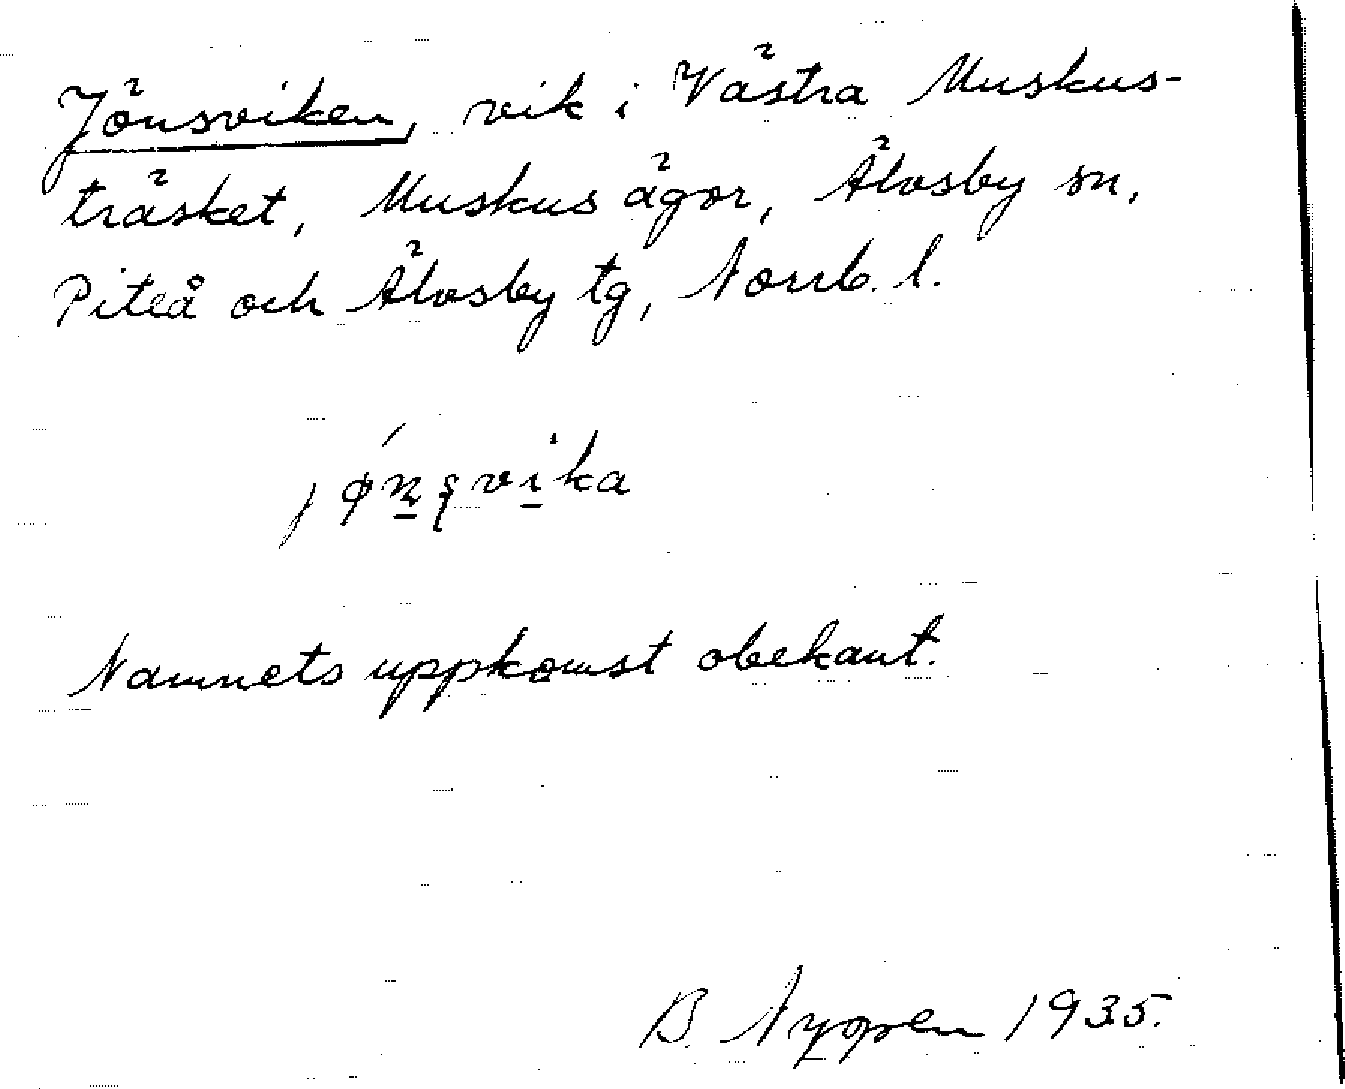 Jönsviken, vik i Västra Muskus-
träsket, Muskus ägor, Älvsby sn,
Piteå och Älvsby tg, Norrb. l.
jǿn̲ʂvi̲ka
Namnets uppkomst obekant.
B. Nygren 1935.